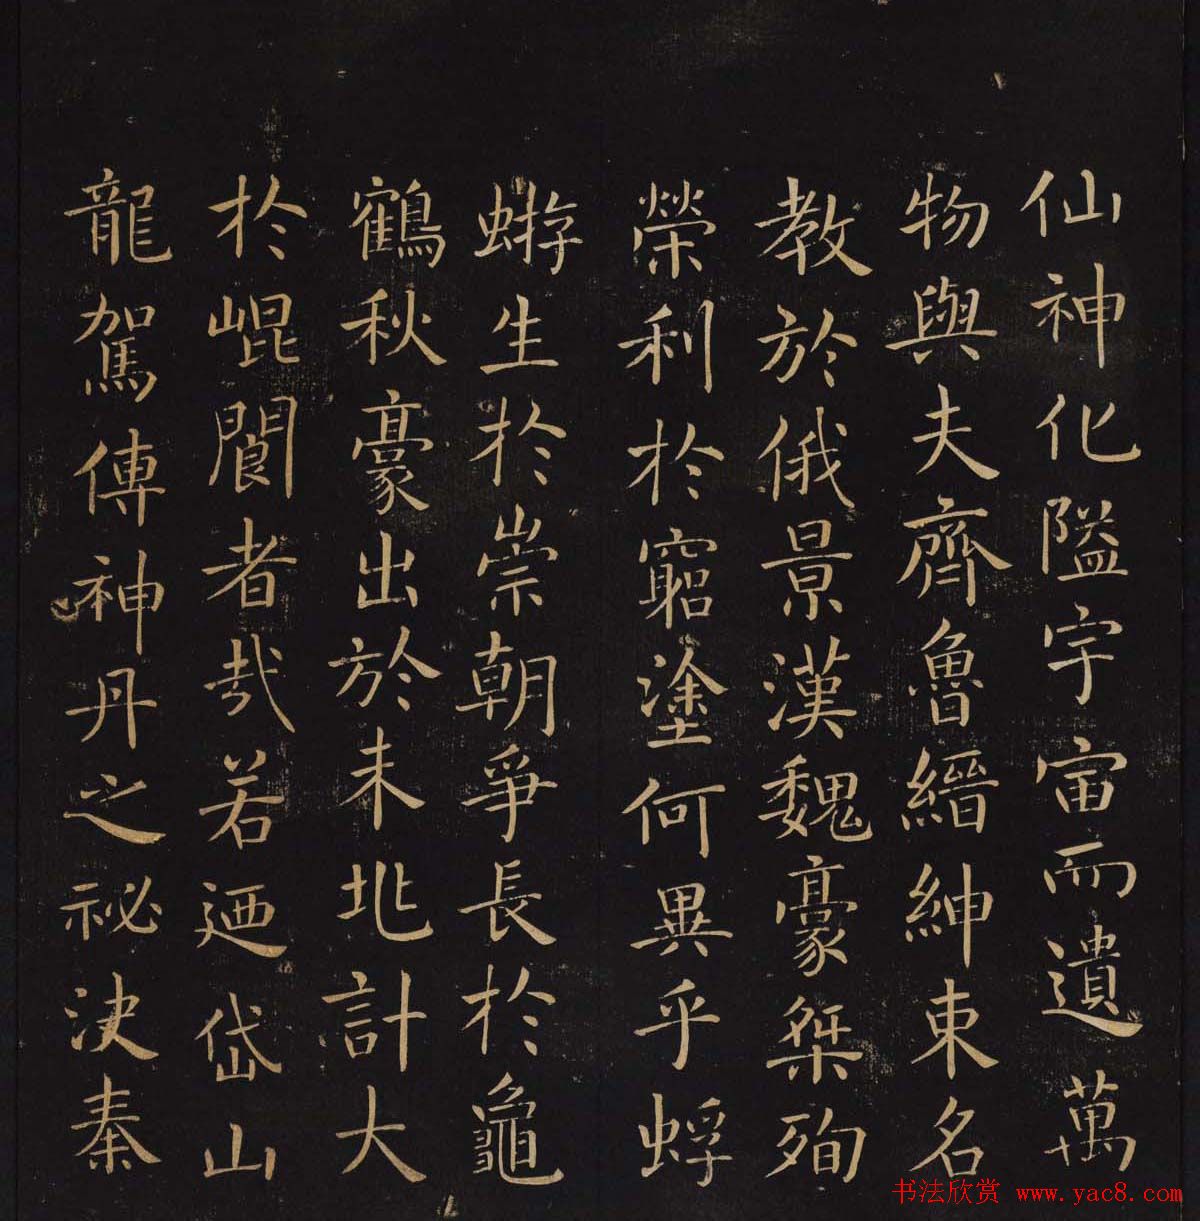 仙神化隘宇宙而遺萬
物與夫齊魯縉紳東名
教於俄景漢魏豪桀殉
榮利於窮塗何異乎蜉
蝣生於崇朝爭長於龜
鶴秋豪出於未兆計大
於崐閬者哉若廼岱山
龍駕傳神丹之祕決秦
书法欣赏 www.yac8.com